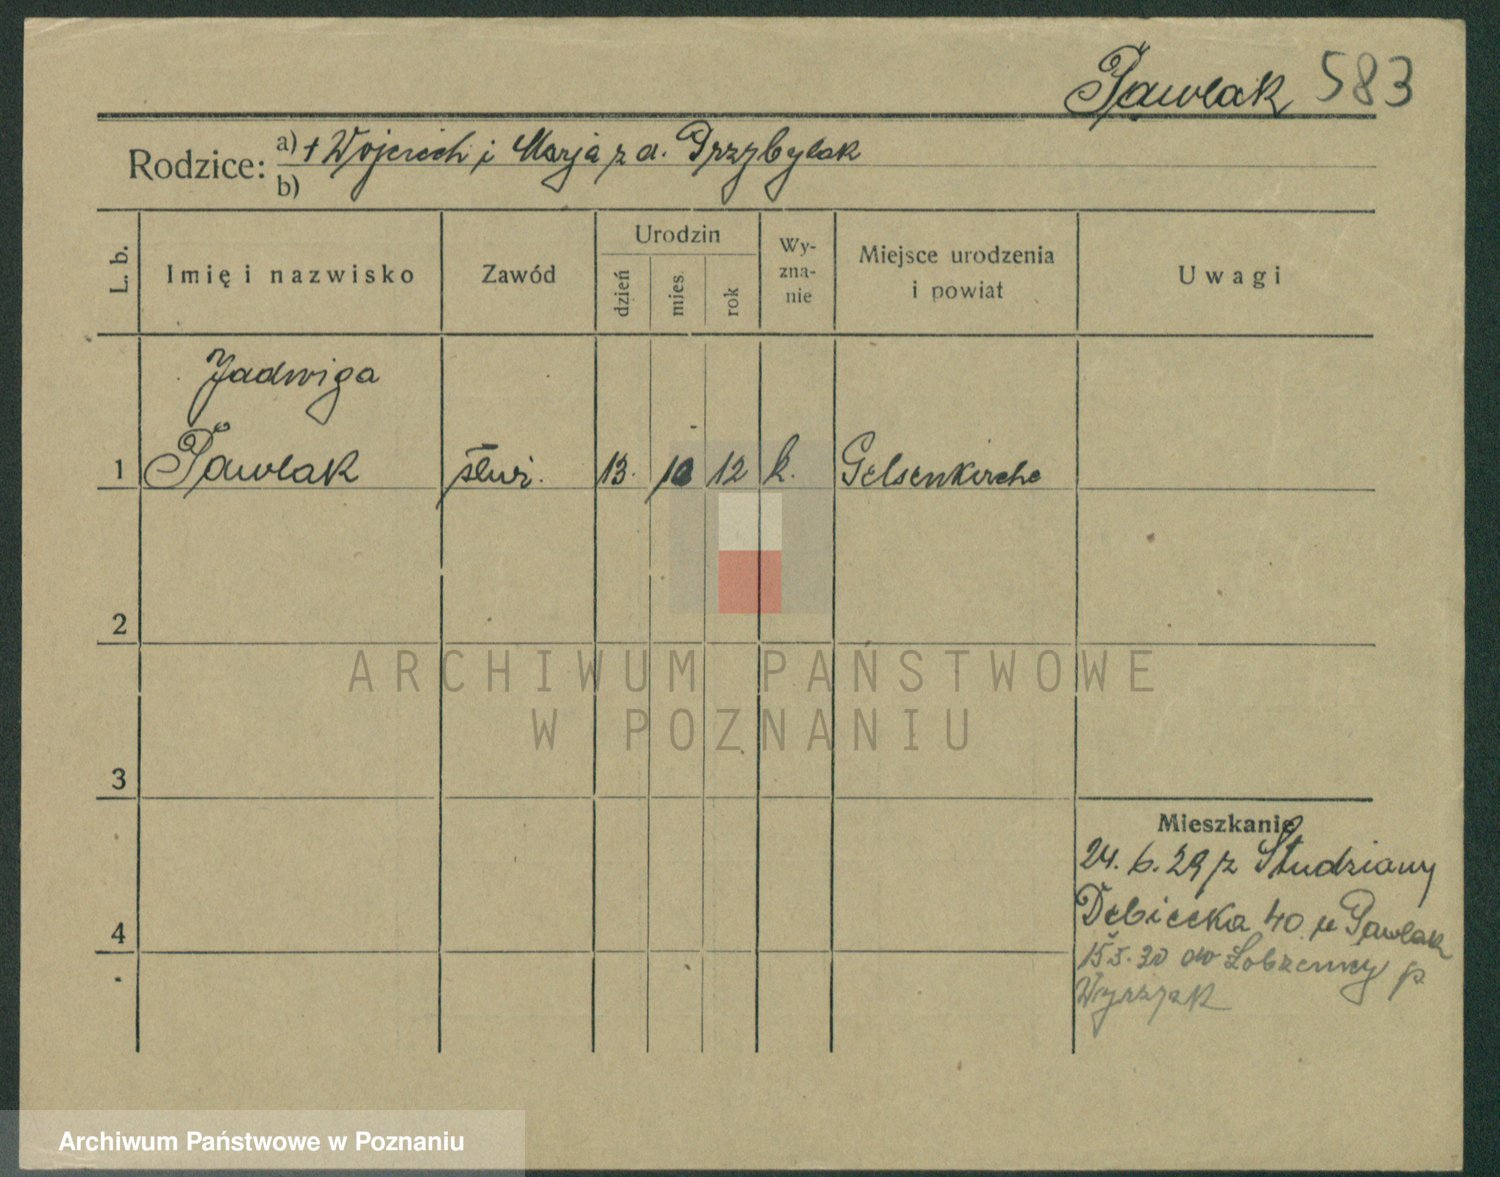 Pawlak 583
Rodzice: a) + Wojciech i Marja z d. Przybylak
b)
L. b.
Imię i nazwisko
Zawód
Urodzin
dzień
mies.
rok
Wy-
zna-
nie
Miejsce urodzenia
i powiat
Uwagi
Jadwiga
1 Pawlak służ. 13. 10 12 k. Gelsenkirche
2
3
4
Mieszkanie
24. 6. 29 z Studziany
Dębiecka 40 u Pawlak
15.5.30 do Łobżenicy p.
Wyrzysk
ARCHIWUM PAŃSTWOWE
W POZNANIU
Archiwum Państwowe w Poznaniu